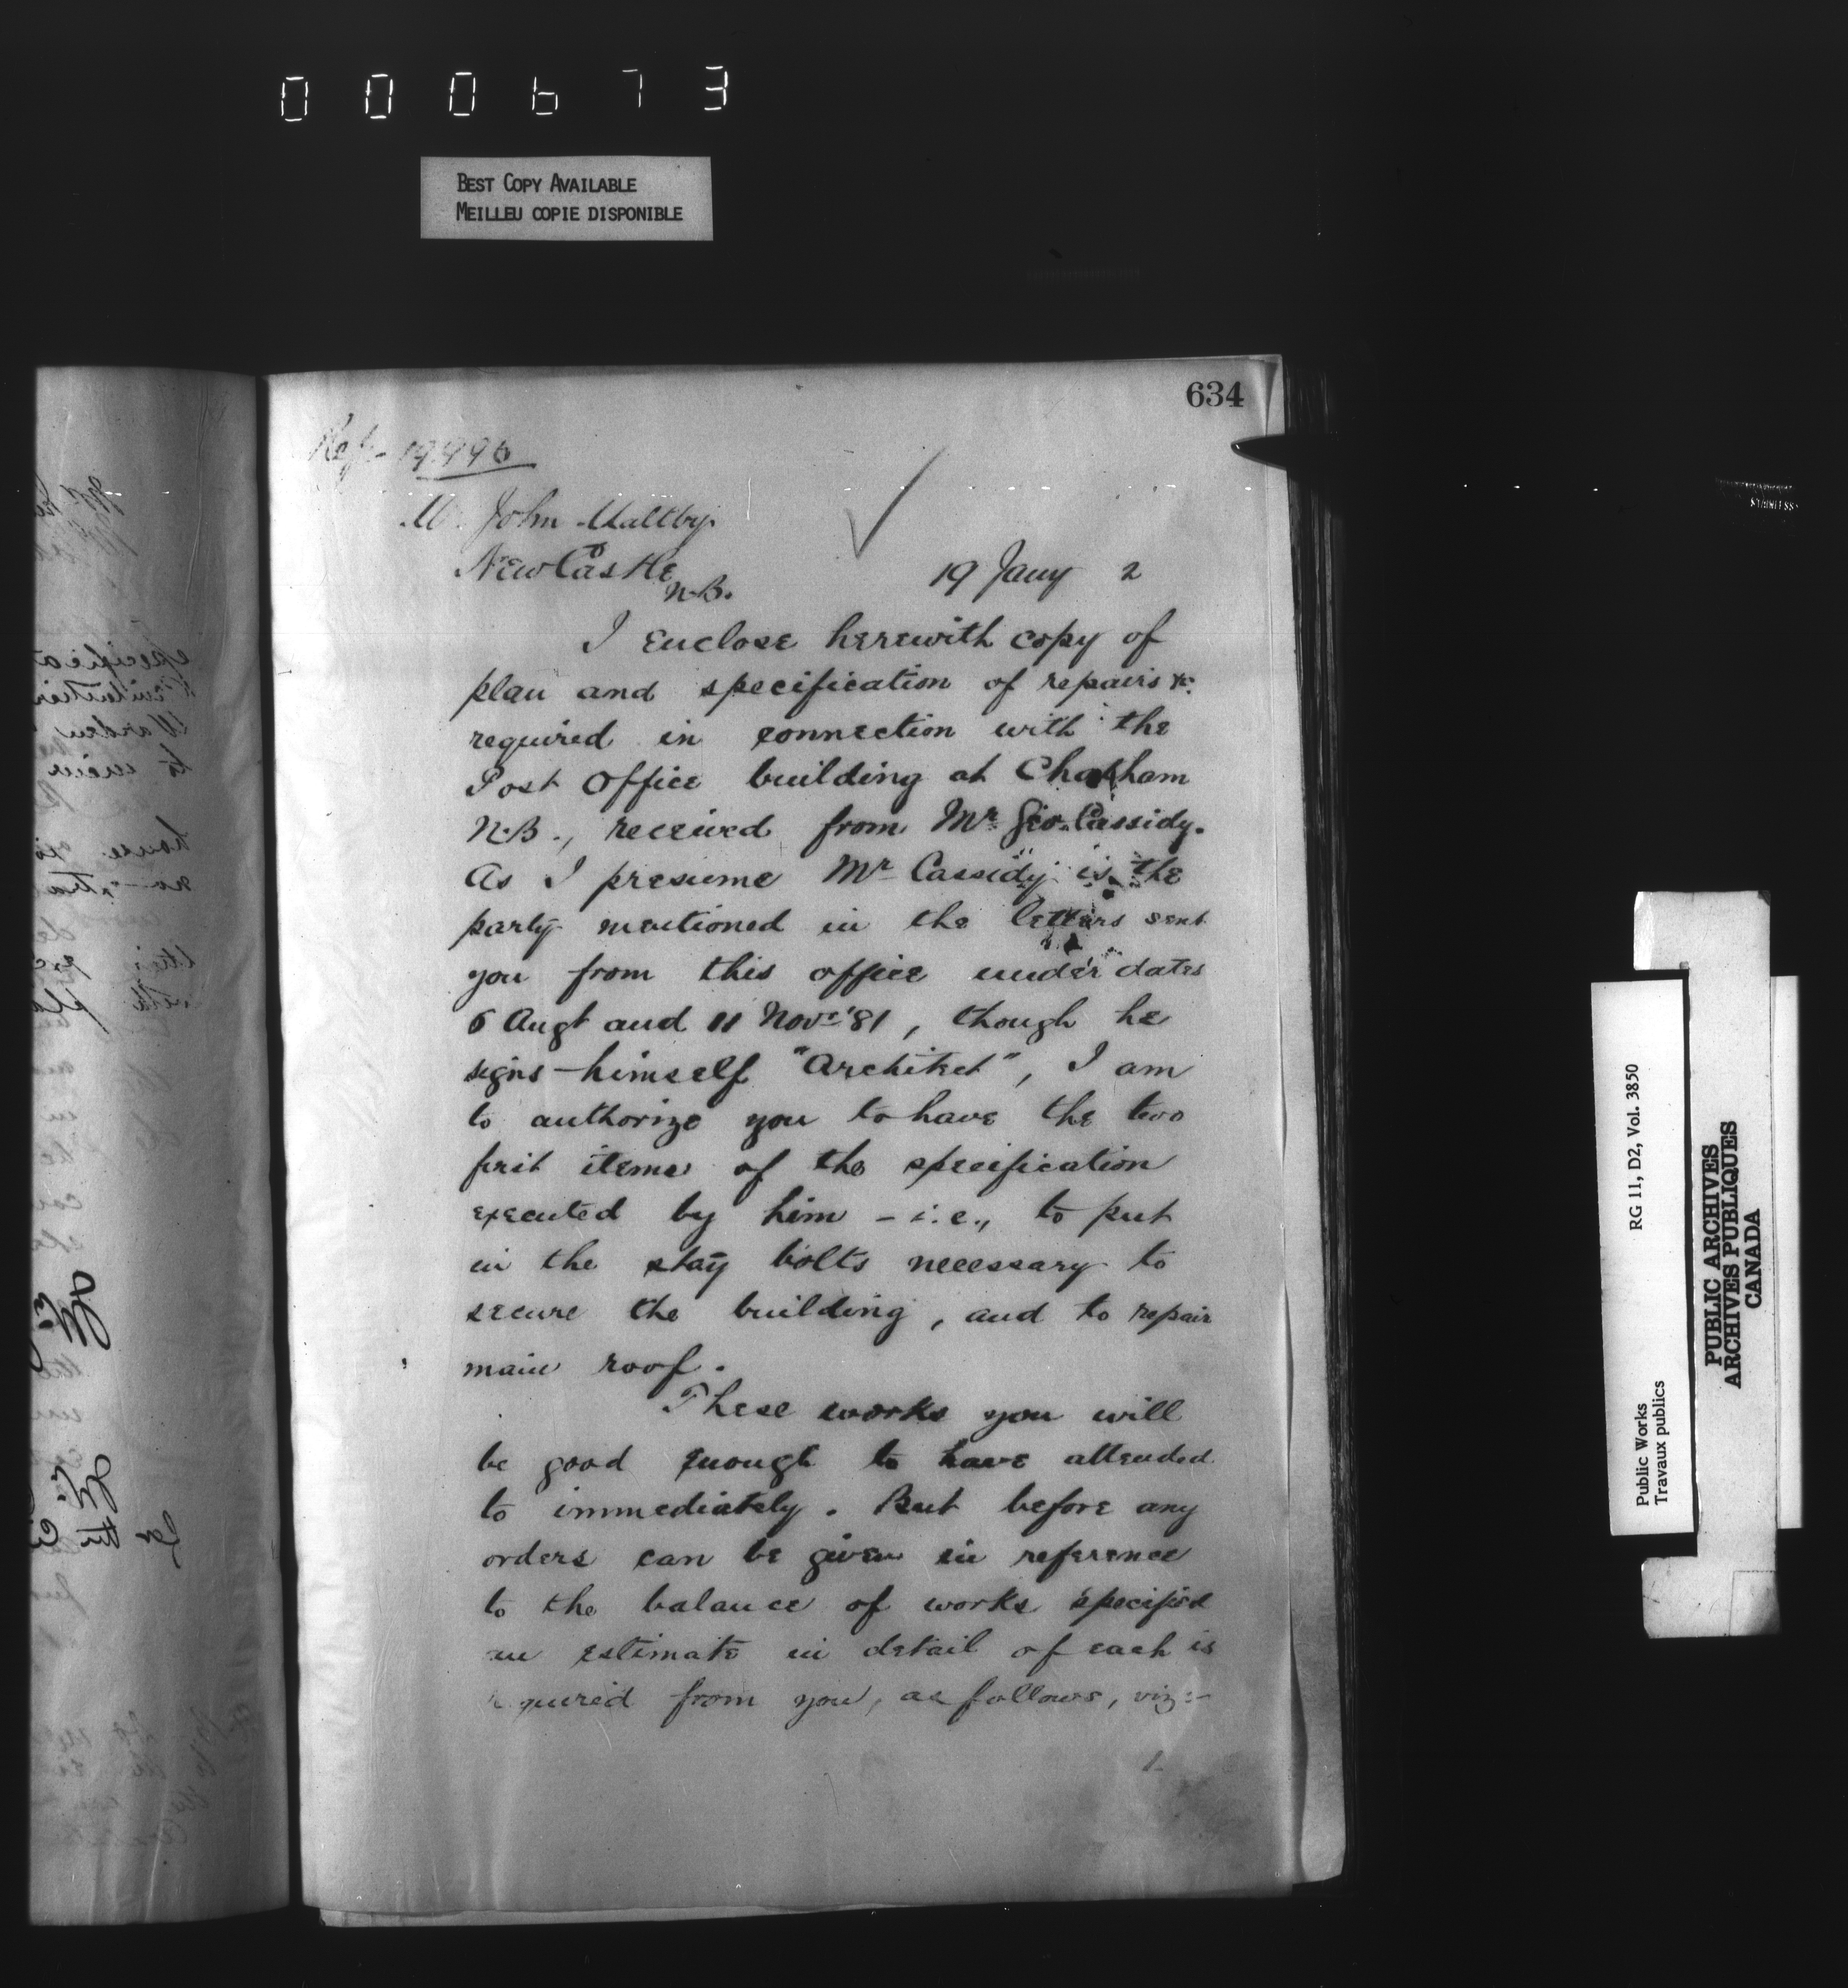 000673
BEST COPY AVAILABLE
MEILLEU COPIE DISPONIBLE
634
Ref. 19496
Mr John Maltby.
NewCastle
N.B.
19 Jany 2
I enclose herewith copy of
plan and specification of repairs &c.
required in connection with the
Post Office building at Chatham
N.B., received from Mr Geo. Cassidy.
As I presume Mr Cassidy is the
party mentioned in the letters sent
you from this office under dates
6 Augt and 11 Novr '81, though he
signs himself "Architect", I am
to authorize you to have the two
first items of the specification
executed by him - i.e., to put
in the stay bolts necessary to
secure the building, and to repair
main roof.
These works you will
be good enough to have attended
to immediately. But before any
orders can be given in reference
to the balance of works specified
an estimate in detail of each is
required from you, as follows, viz:-
1.
Public Works
Travaux publics
RG 11, D2, Vol. 3850
PUBLIC ARCHIVES
ARCHIVES PUBLIQUES
CANADA